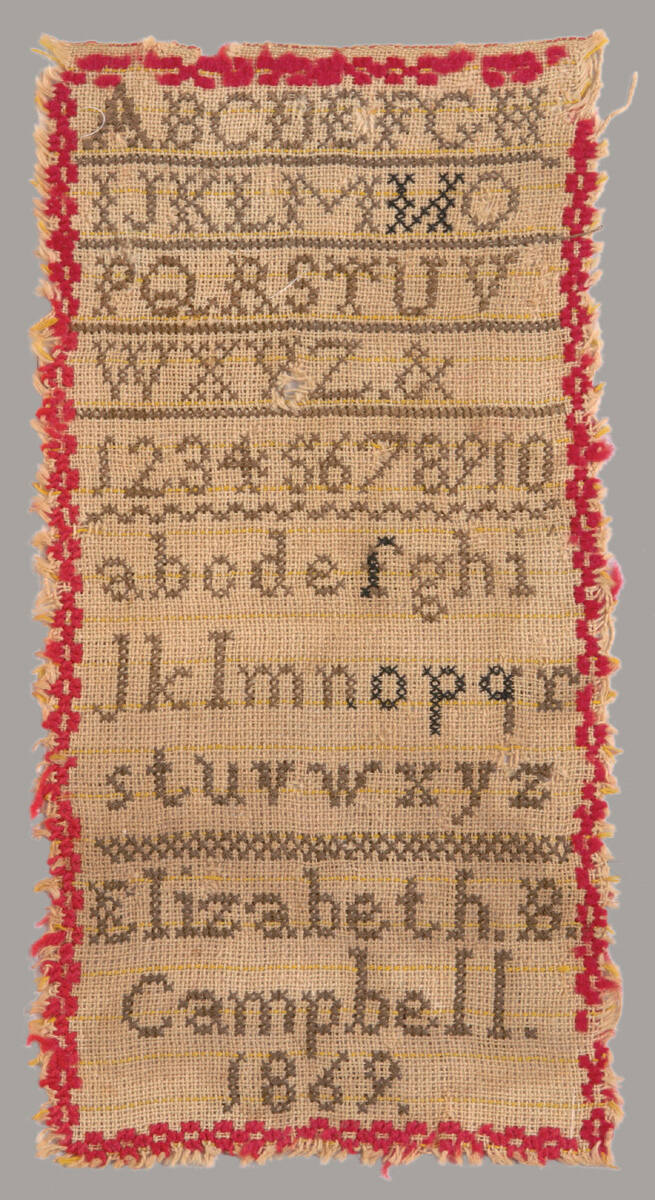 ABCDEFGH
IJKLMNO
PQ.RSTUV
WXYZ.&
12345678910
abcdefghi
jklmnopqr
stuvwxyz
Elizabeth.B.
Campbell.
1869.